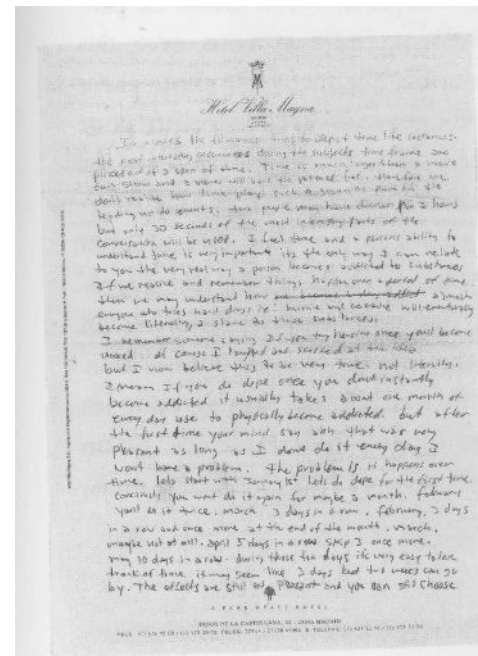 Hotel Villa Magna
In movies the
the most interesting during the subjects time frame are
out of a span of time. Time is much longer than a movie
can show and a viewer will have the for, therefore we
don't realize how time plays such a part in the
leading up to events. two people may have dinner for 2 hours
but only 30 seconds of the most interesting parts of the
conversation will be used. I feel time and a persons ability to
understand time is very important its the only way I can relate
to you the very real way a person becomes addicted to substances
if we realize and remember things happen over a period of time
then we may understand how almost
everyone who tries hard drugs ie: heroine and cocaine will eventually
become literally, a slave to these substances.
I remember someone saying if you try heroine once you'll become
hooked. of course I laughed and scoffed at the idea
but I now believe this to be very true. not literally,
I mean If you do dope once you dont instantly
become addicted it usually takes about one month of
every day use to physically become addicted. but after
the first time your mind say ahh that was very
pleasant as long as I dont do it every day I
wont have a problem. The problem is it happens over
time. lets start with January 1st lets do dope for the first time.
you wont do it again for maybe a month. february
youll do it twice. march 3 days in a row. february, 3 days
in a row and once more at the end of the month. march.
maybe not at all. april 5 days in a row skip 3 once more.
may 10 days in a row. during those ten days its very easy to lose
track of time. it may seem like 3 days but two weeks can go
by. The effects are still as pleasant and you can still choose
A PARK HYATT HOTEL
PASEO DE LA CASTELLANA, 22 - 28046 MADRID